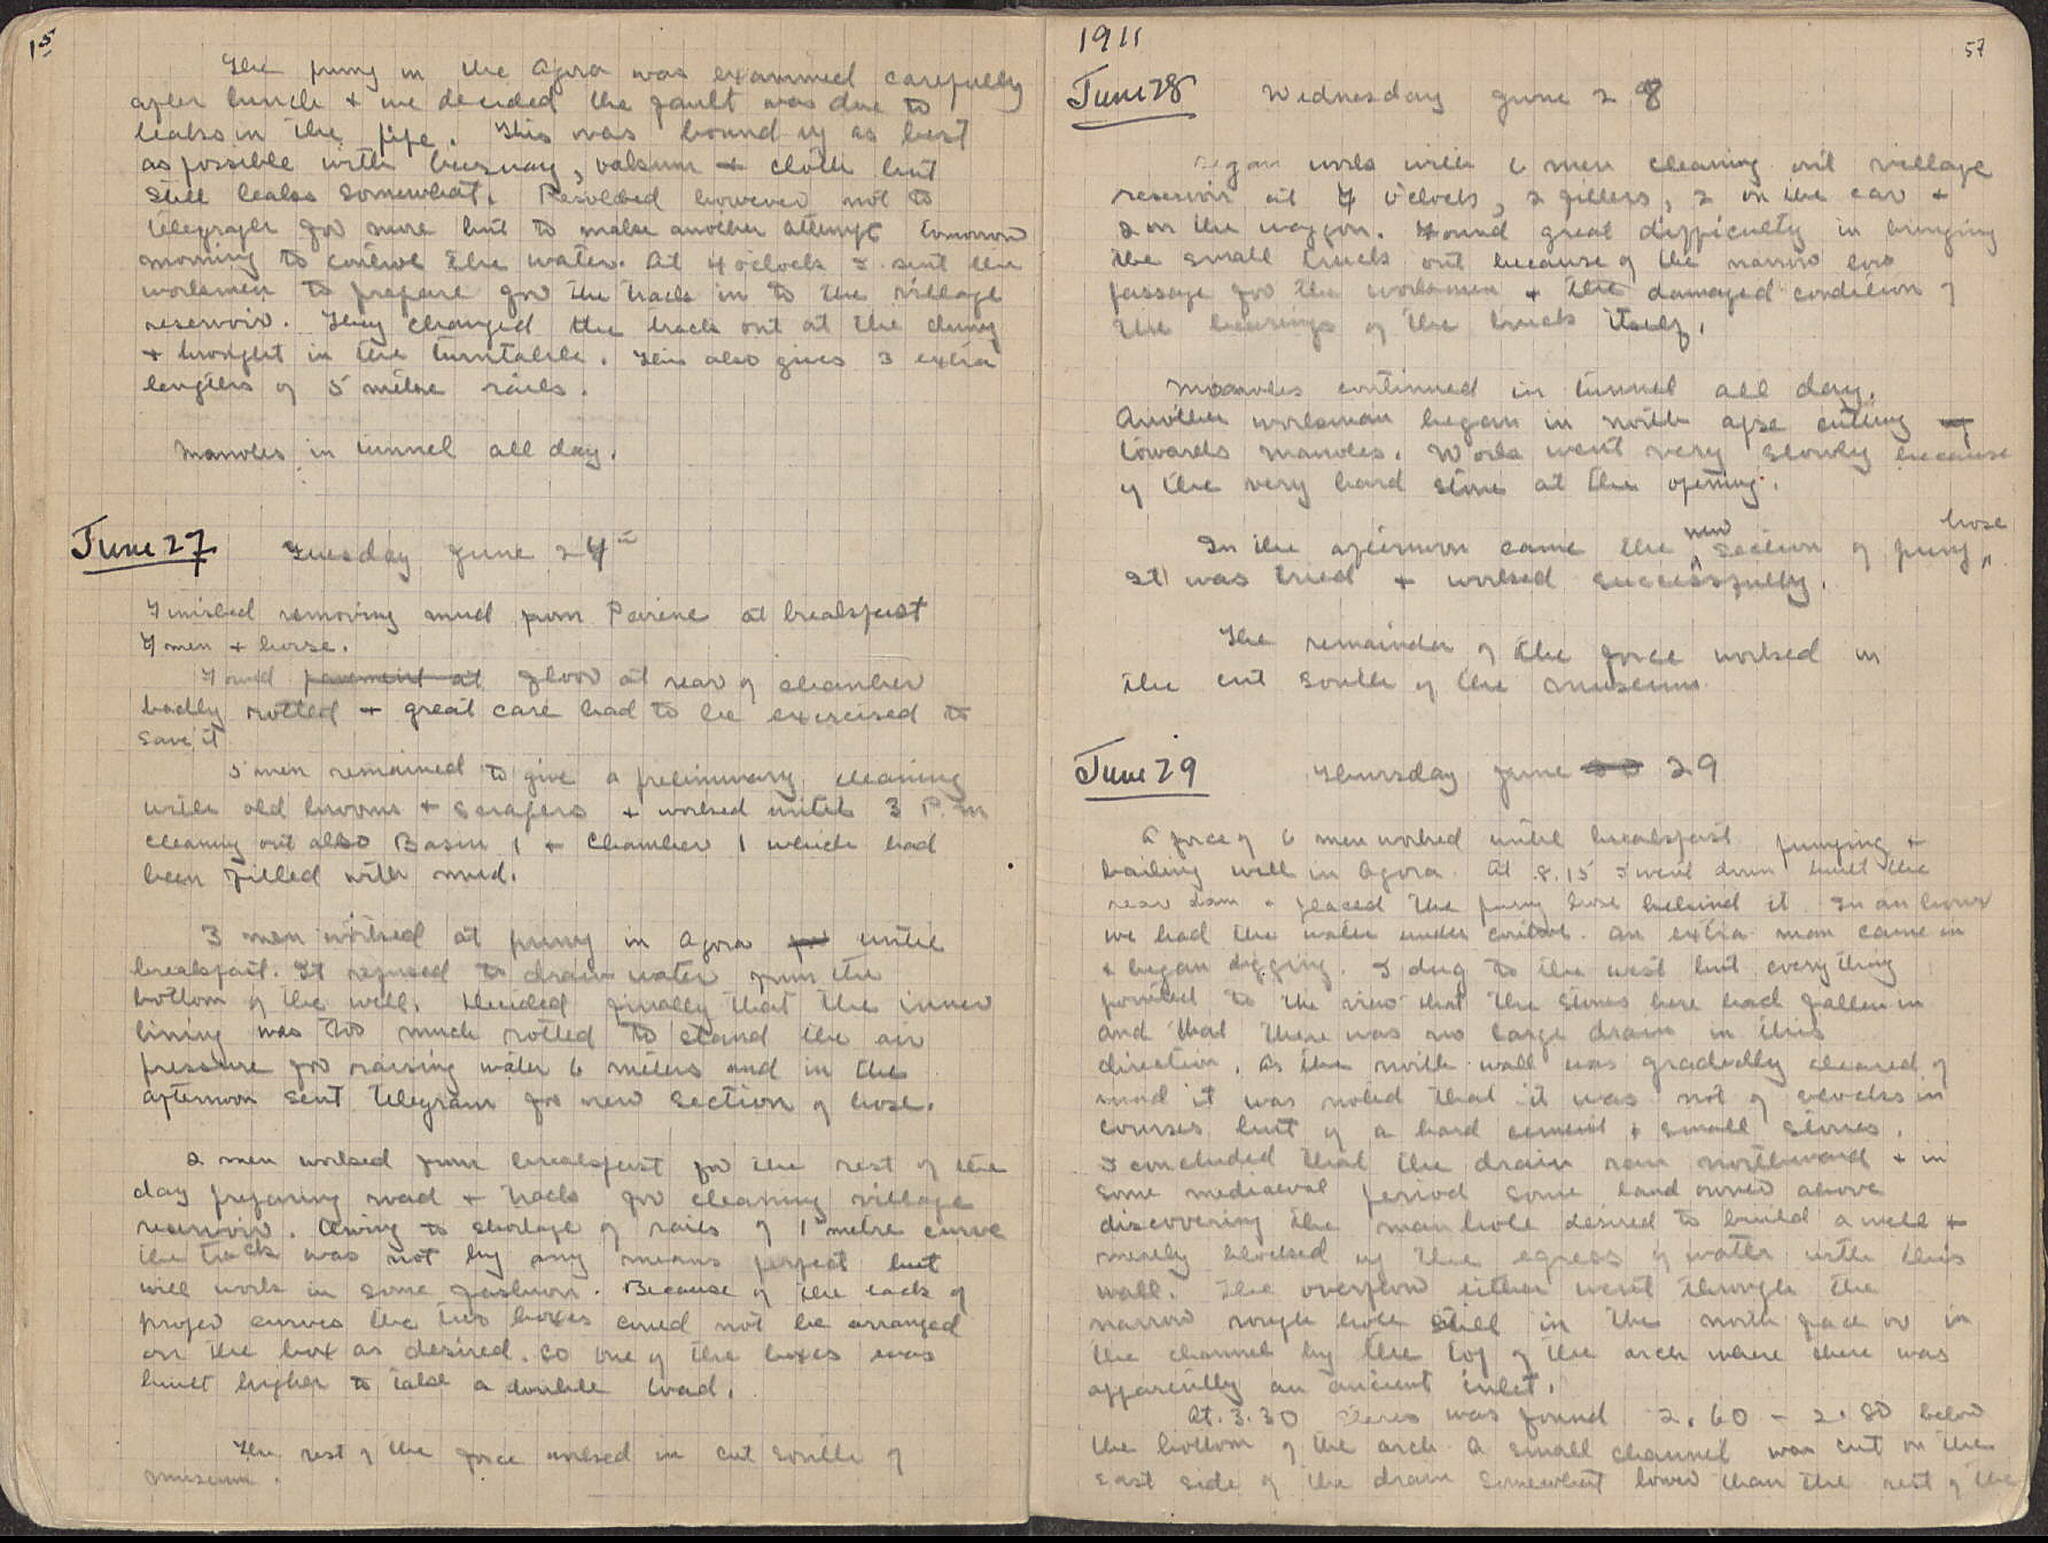 15
The pump in the Agora was examined carefully
after lunch + we decided the fault was due to
leaks in the pipe. This was bound up as best
as possible with , balsum + cloth but
still leaks somewhat. Resolved however not to
telegraph for more but to make another attempt tomorrow
morning to control the water. At 4 o'clock I sent the
workmen to prepare for the track in to the village
reservoir. They changed the track out at the dump
+ brought in the turntable. This also gives 3 extra
lengths of 5 metre rails.
Manoles in tunnel all day.
June 27
Tuesday June 27th
Finished removing mud from Peirene at breakfast
7 men + horse.
Found pavement at floor at rear of chamber
badly rotted + great care had to be exercised to
save it
5 men remained to give a preliminary cleaning
with old brooms + scrapers + worked until 3 P.M
cleaning out also Basin 1 + Chamber 1 which had
been filled with mud.
3 men worked at pump in Agora until
breakfast. It refused to draw water from the
bottom of the well. Decided finally that the inner
lining was too much rotted to stand the air
pressure for raising water 6 meters and in the
afternoon sent telegram for new section of hose.
2 men worked from breakfast for the rest of the
day preparing road + track for cleaning village
reservoir. Owing to shortage of rails of 1 metre curve
the track was not by any means perfect but
will work in some fashion. Because of the lack of
proper curves the two boxes could not be arranged
on the box as desired. So one of the boxes was
built higher to take a double load.
The rest of the force worked in cut south of
museum.
1911
57
June 28
Wednesday June 28
Began work with 6 men cleaning out village
reservoir at 7 o'clock, 2 fillers, 2 on the car +
2 on the waggon. Found great difficulty in bringing
the small truck out because of the narrow low
passage for the workmen + the damaged condition of
the bearings of the truck itself.
Manoles continued in tunnel all day.
Another workman began in north apse cutting up
towards Manoles. Work went very slowly because
of the very hard stone at the opening.
In the afternoon came the new section of pump hose
It was tried + worked successfully.
The remainder of the force worked in
the cut south of the museum
June 29
Thursday June 29
A force of 6 men worked until breakfast pumping +
bailing well in Agora. At 8.15 I went down built the
rear dam + placed the pump hose behind it. In an hour
we had the water under control. An extra man came in
+ began digging. I dug to the west but everything
pointed to the view that the stones here had fallen in
and that there was no large drain in this
direction. As the north wall was gradually cleared of
mud it was noted that it was not of blocks in
courses but of a hard cement + small stones.
I concluded that the drain ran northward + in
some mediaeval period some land owner above
discovering the man hole desired to build a well +
merely blocked up the egress of water with this
wall. The overflow either went through the
narrow rough hole still in the north face or in
the channel by the top of the arch where there was
apparently an ancient inlet.
At 3.30 was found 2.60 - 2.80 below
the bottom of the arch. A small channel was cut on the
east side of the drain somewhat lower than the rest of the